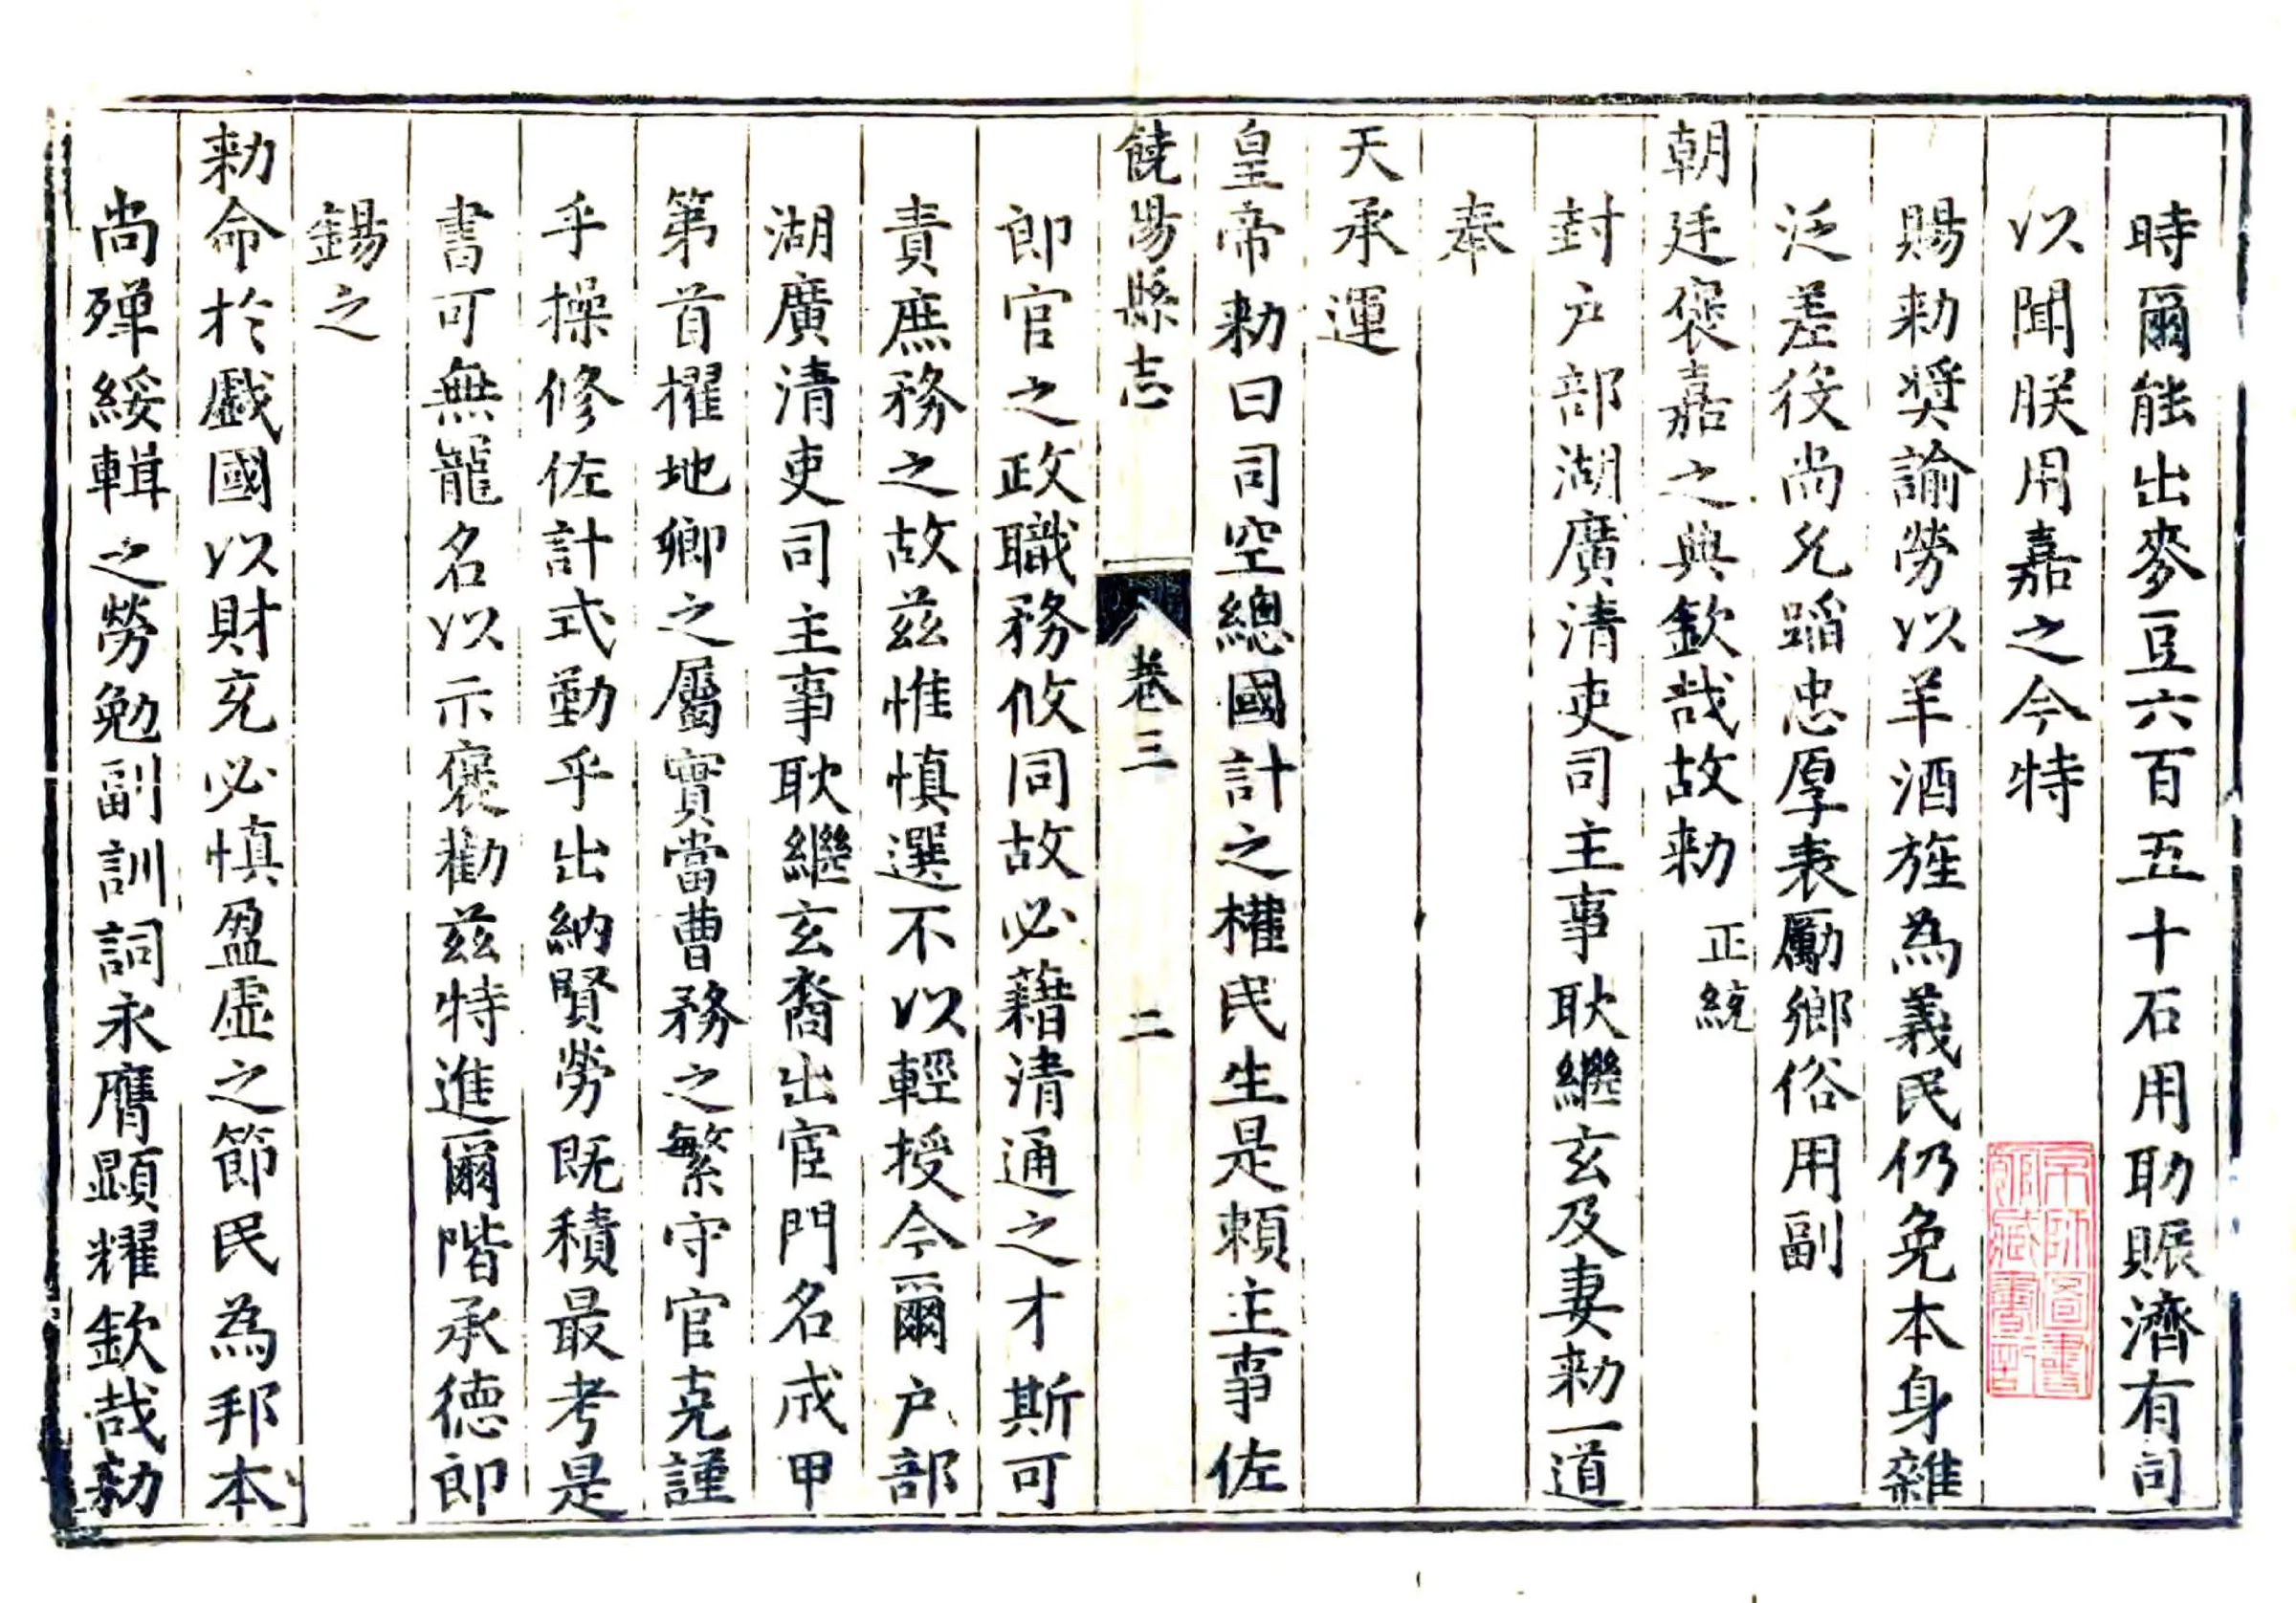 時爾能出麥豆六百五十石用助賑濟有司
以聞朕用嘉之今特
賜勑奨諭勞以羊酒旌為義民仍免本身雜
泛差役尚允蹈忠厚表勵鄉俗用副
朝廷褒嘉之典欽哉故勑 正統
封户部湖廣清吏司主事耿繼玄及妻勑一道
奉
天承運
皇帝勑曰司空總國計之權民生是賴主事佐
饒陽縣志 卷三 二
郎官之政職務攸同故必藉清通之才斯可
責庶務之故茲惟慎選不以輕授今爾户部
湖廣清吏司主事耿繼玄裔出宦門名成甲
第首擢地卿之屬實當曹務之繁守官克謹
乎操修佐計式勤乎出納賢勞既積最考是
書可無寵名以示褒勸茲特進爾階承德郎
錫之
勑命於戲國以財充必慎盈虛之節民為邦本
尚殫綏輯之勞勉副訓詞永膺顯耀欽哉勑
京師圖書館藏書記